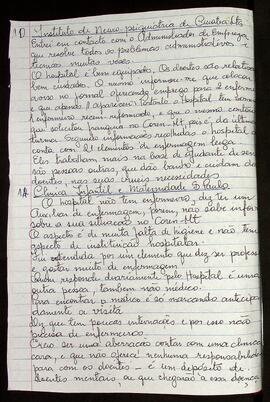 1D Instituto de Neuro psiquiatria de Cuiabá
Entrei em contacto com o Administrador da Empresa
que resolve todos os problemas administrativos e
técnicos muitas vezes.
O hospital é bem equipado. Os doentes são relativa
bem cuidados. O mesmo informou-me que colocou
aviso no jornal oferecendo emprego para 2 enferme
e que apenas 1 apareceu. Portanto o Hospital tem
1 enfermeiro recem-informado, e que o mesmo
que solicitou franquia no Coren-MT pois é, da última
turma. Segundo informações recolhidas o hospital
conta com 21 elementos de enfermagem leiga.
Eles trabalham mais na base de ajudante de
são pessoas outras, que dão banho e cuidam de
doentes, nas suas necessidades
1A Clínica Infantil e Maternidade S. Paulo
O hospital não tem enfermeiro, diz ter um
Auxiliar de enfermagem, porém não sabe inform
sobre a sua situação no Coren-MT
O aspecto é de muita falta de higiene e não tem
aspecto de instituição hospitalar.
Fui atendida por um elemento que diz ser professo
e gostar muito de enfermagem.
Quem responde diariamente pelo Hospital é uma
outra pessoa, também não médico.
Para encontrar o médico é só marcando anticipa
damente a visita
Diz que tem poucas internações e por isso não
precisa de enfermeiros.
Creio ser uma aberração contar com uma clínica
cara, e que não oferece nenhuma responsabilidade
para com os doentes – é um depósito de
doentes mentais, ou que chegarão a essa doença